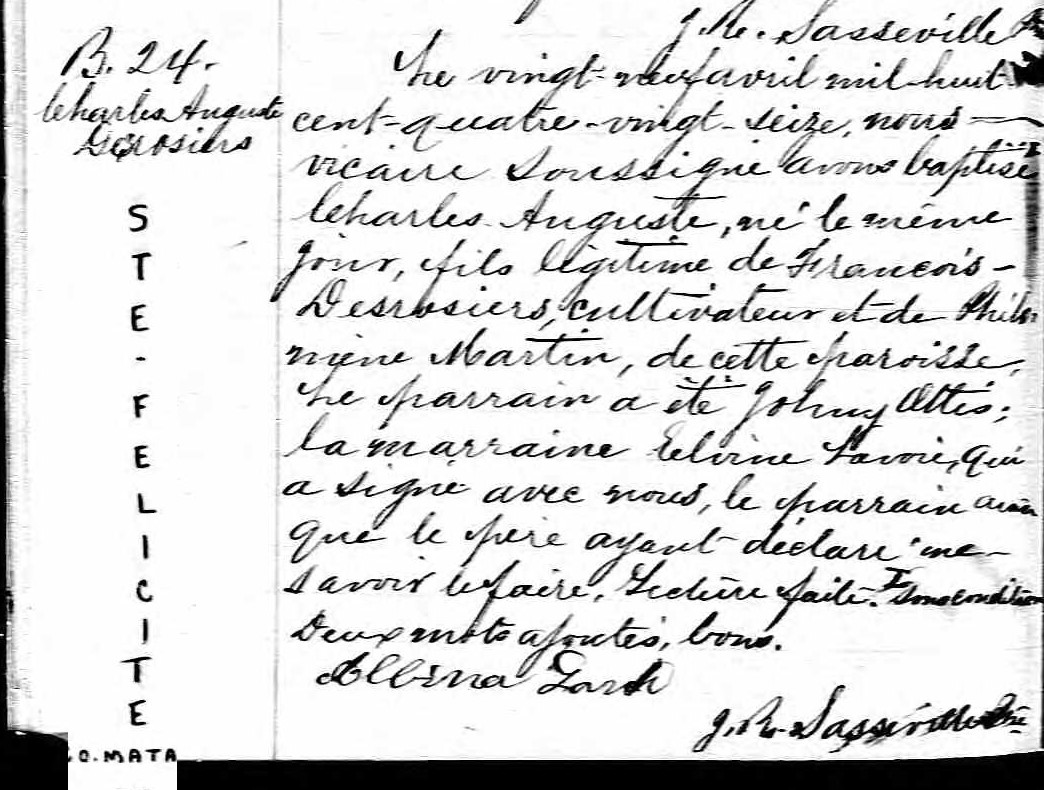 J. R. Sasseville Ptre
B. 24.
Charles Auguste
Desrosiers
STE-FELICITE
CO. MATA
Le vingt-neuf avril mil-huit-
cent-quatre-vingt-seize, nous
vicaire soussigné avons baptisé
Charles Auguste, né le même
jour, fils légitime de Francois-
Desrosiers, cultivateur et de Philo
mène Martin, de cette paroisse,
Le parrain a été Johny Ottis;
la marraine Elvine Savoie, qui
a signé avec nous, le parrain ainsi
que le père ayant déclaré ne
savoir le faire. Lecture faite. sous condition
Deux mots ajoutés, bons.
Albina
J. R. Sasseville Ptre